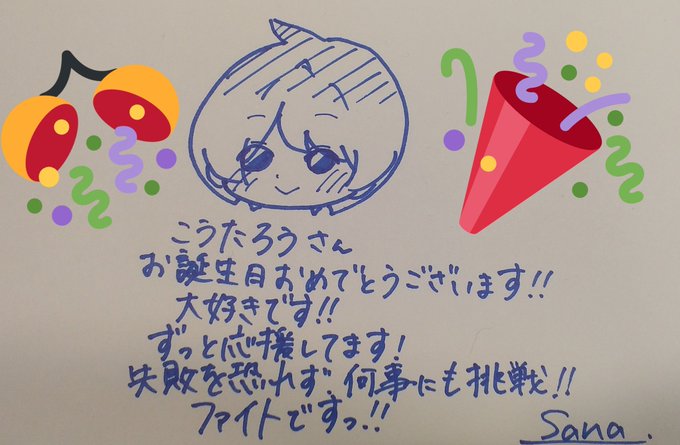 こうたろうさん
お誕生日おめでとうございます!!
大好きです!!
ずっと応援してます!
失敗を恐れず、何事にも挑戦!!
ファイトですっ!!
Sana.